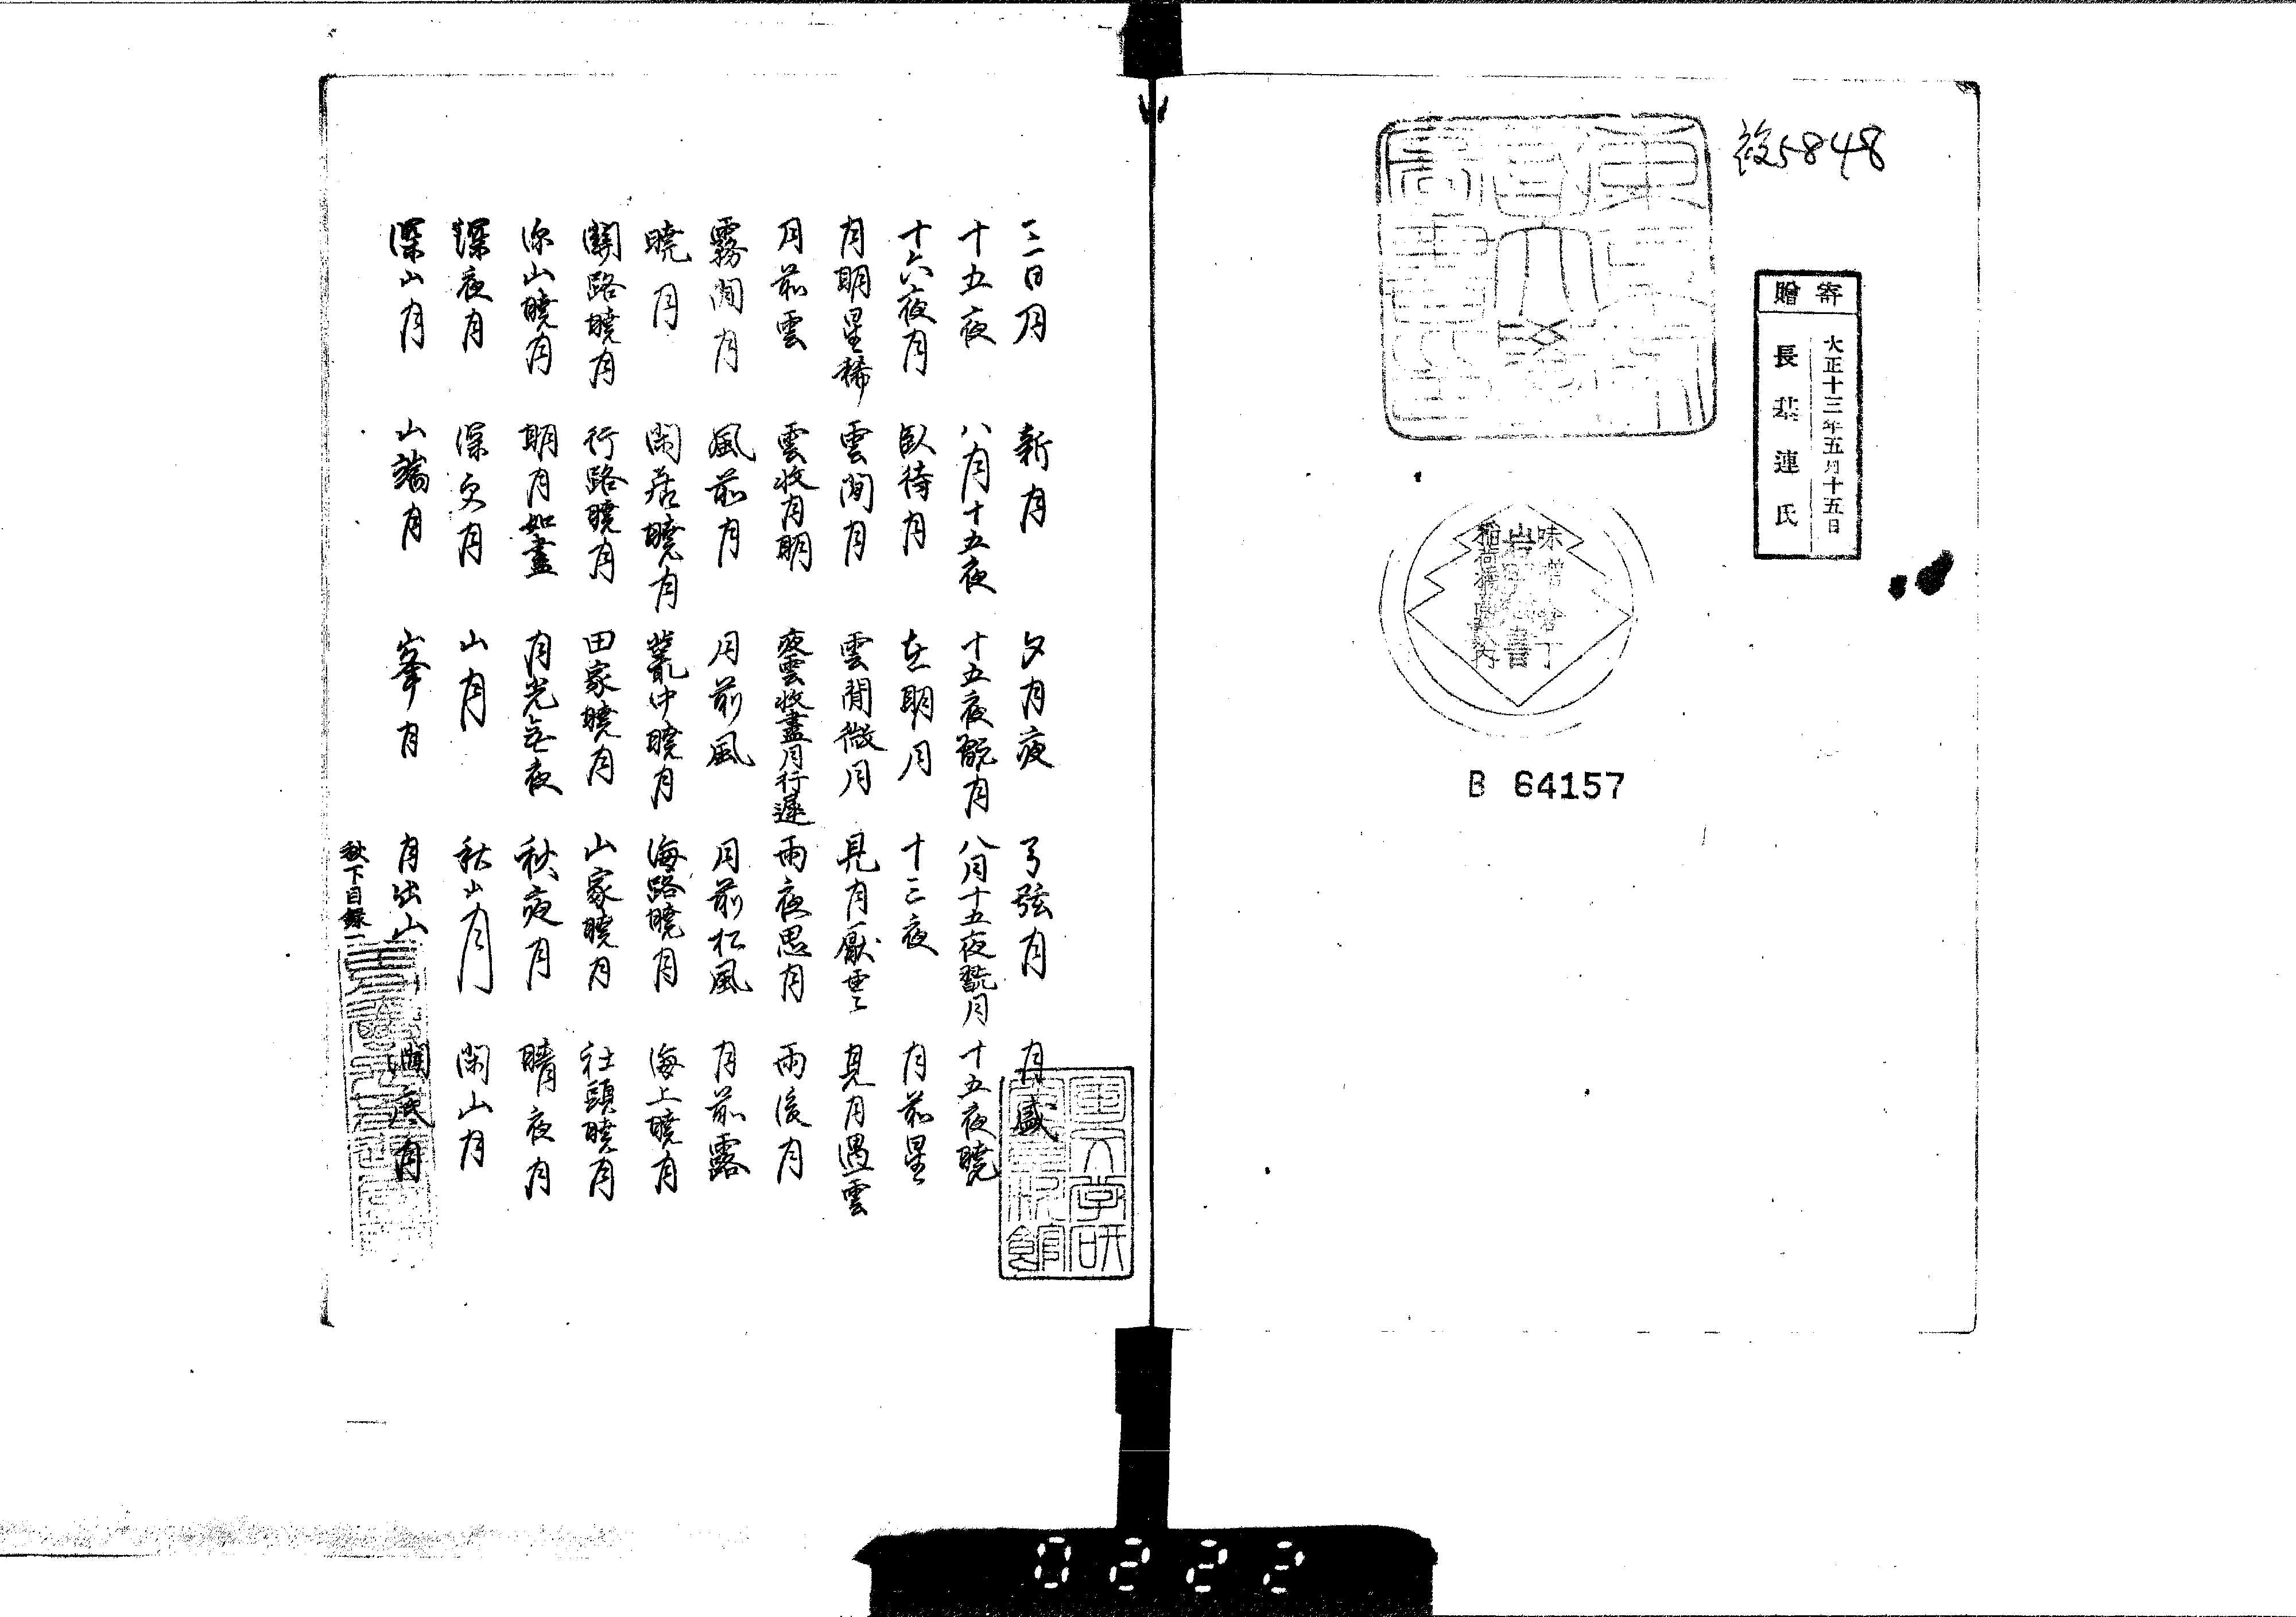 複5848
寄贈
大正十三年五月十五日
長基連氏
B 64157
三日月 新月 夕月夜 弓弦月 月盛
十五夜 八月十五夜 十五夜翫月 八月十五夜翫月 十五夜曉
十六夜月 臥待月 在明月 十三夜 月前星
月明星稀 雲間月 雲間微月 見月厭雲 見月遇雲
月前雲 雲收月明 夜雲收盡月行遲 雨夜思月 雨後月
霧間月 風前月 月前風 月前松風 月前露
曉月 閑居曉月 叢中曉月 海路曉月 海上曉月
關路曉月 行路曉月 田家曉月 山家曉月 社頭曉月
深山曉月 明月如晝 月光無夜 秋夜月 晴夜月
深夜月 深更月 山月 秋山月 閑山月
深山月 山端月 峯月 月出山 澗底月
秋下目録一
0222